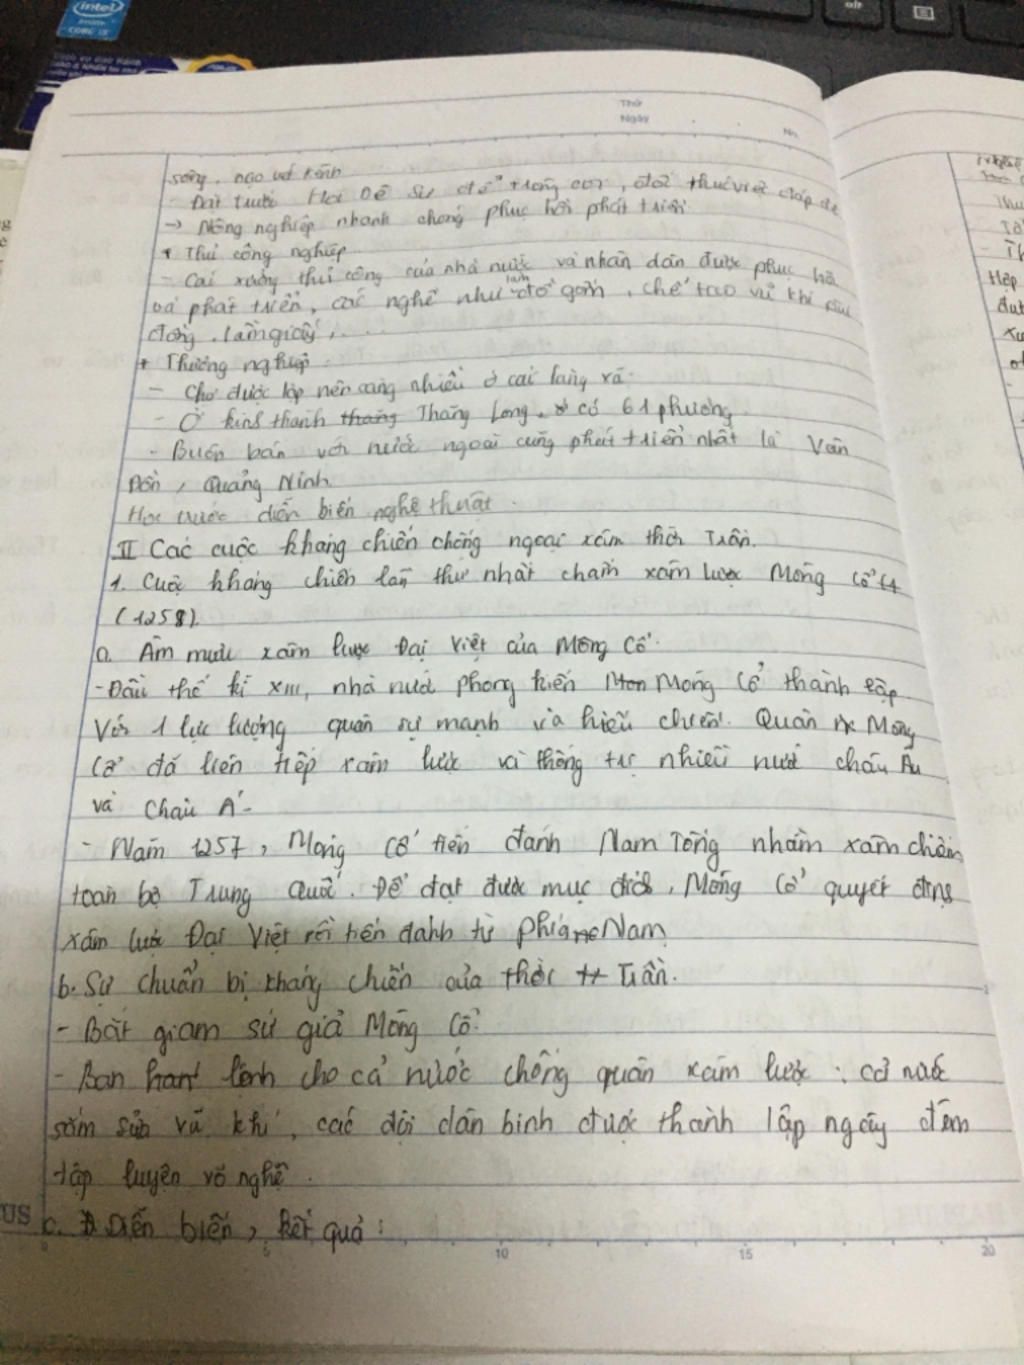 intel
CORE i3
alt
Thứ
Ngày
No.
sông, nạo vét kênh
- Đặt trước Hà Đê Sứ để trông coi, đốc thúc việc đắp đê
→ Nông nghiệp nhanh chóng phục hồi phát triển
+ Thủ công nghiệp
- Các xưởng thủ công của nhà nước và nhân dân được phục hồi
và phát triển, các nghề như làm đồ gốm, chế tạo vũ khí
đóng, làm giấy, ...
+ Thương nghiệp
- Chợ được lập nên càng nhiều ở các làng xã.
- Ở kinh thành thăng Thăng Long, có 61 phường
- Buôn bán với nước ngoài cũng phát triển nhất là Vân
Đồn, Quảng Ninh
Học trước diễn biến nghệ thuật.
II Các cuộc kháng chiến chống ngoại xâm thời Trần.
1. Cuộc kháng chiến lần thứ nhất chống xâm lược Mông Cổ
(1258).
a. Âm mưu xâm lược Đại Việt của Mông Cổ.
- Đầu thế kỉ XIII, nhà nước phong kiến Mon Mông Cổ thành lập
Với 1 lực lượng quân sự mạnh và hiếu chiến. Quân Mông
Cổ đã liên tiếp xâm lược và thống trị nhiều nước châu Âu
và Châu Á.
- Năm 1257, Mông Cổ tiến đánh Nam Tống nhằm xâm chiếm
toàn bộ Trung Quốc. Để đạt được mục đích, Mông Cổ quyết định
xâm lược Đại Việt rồi tiến đánh từ phía Nam
b. Sự chuẩn bị kháng chiến của thời tr Trần.
- Bắt giam sứ giả Mông Cổ
- Ban hant lệnh cho cả nước chống quân xâm lược: cả nước
sắm sửa vũ khí, các đội dân binh được thành lập ngày đêm
tập luyện võ nghệ.
c. Diễn biến, kết quả:
US
0 5 10 15 20